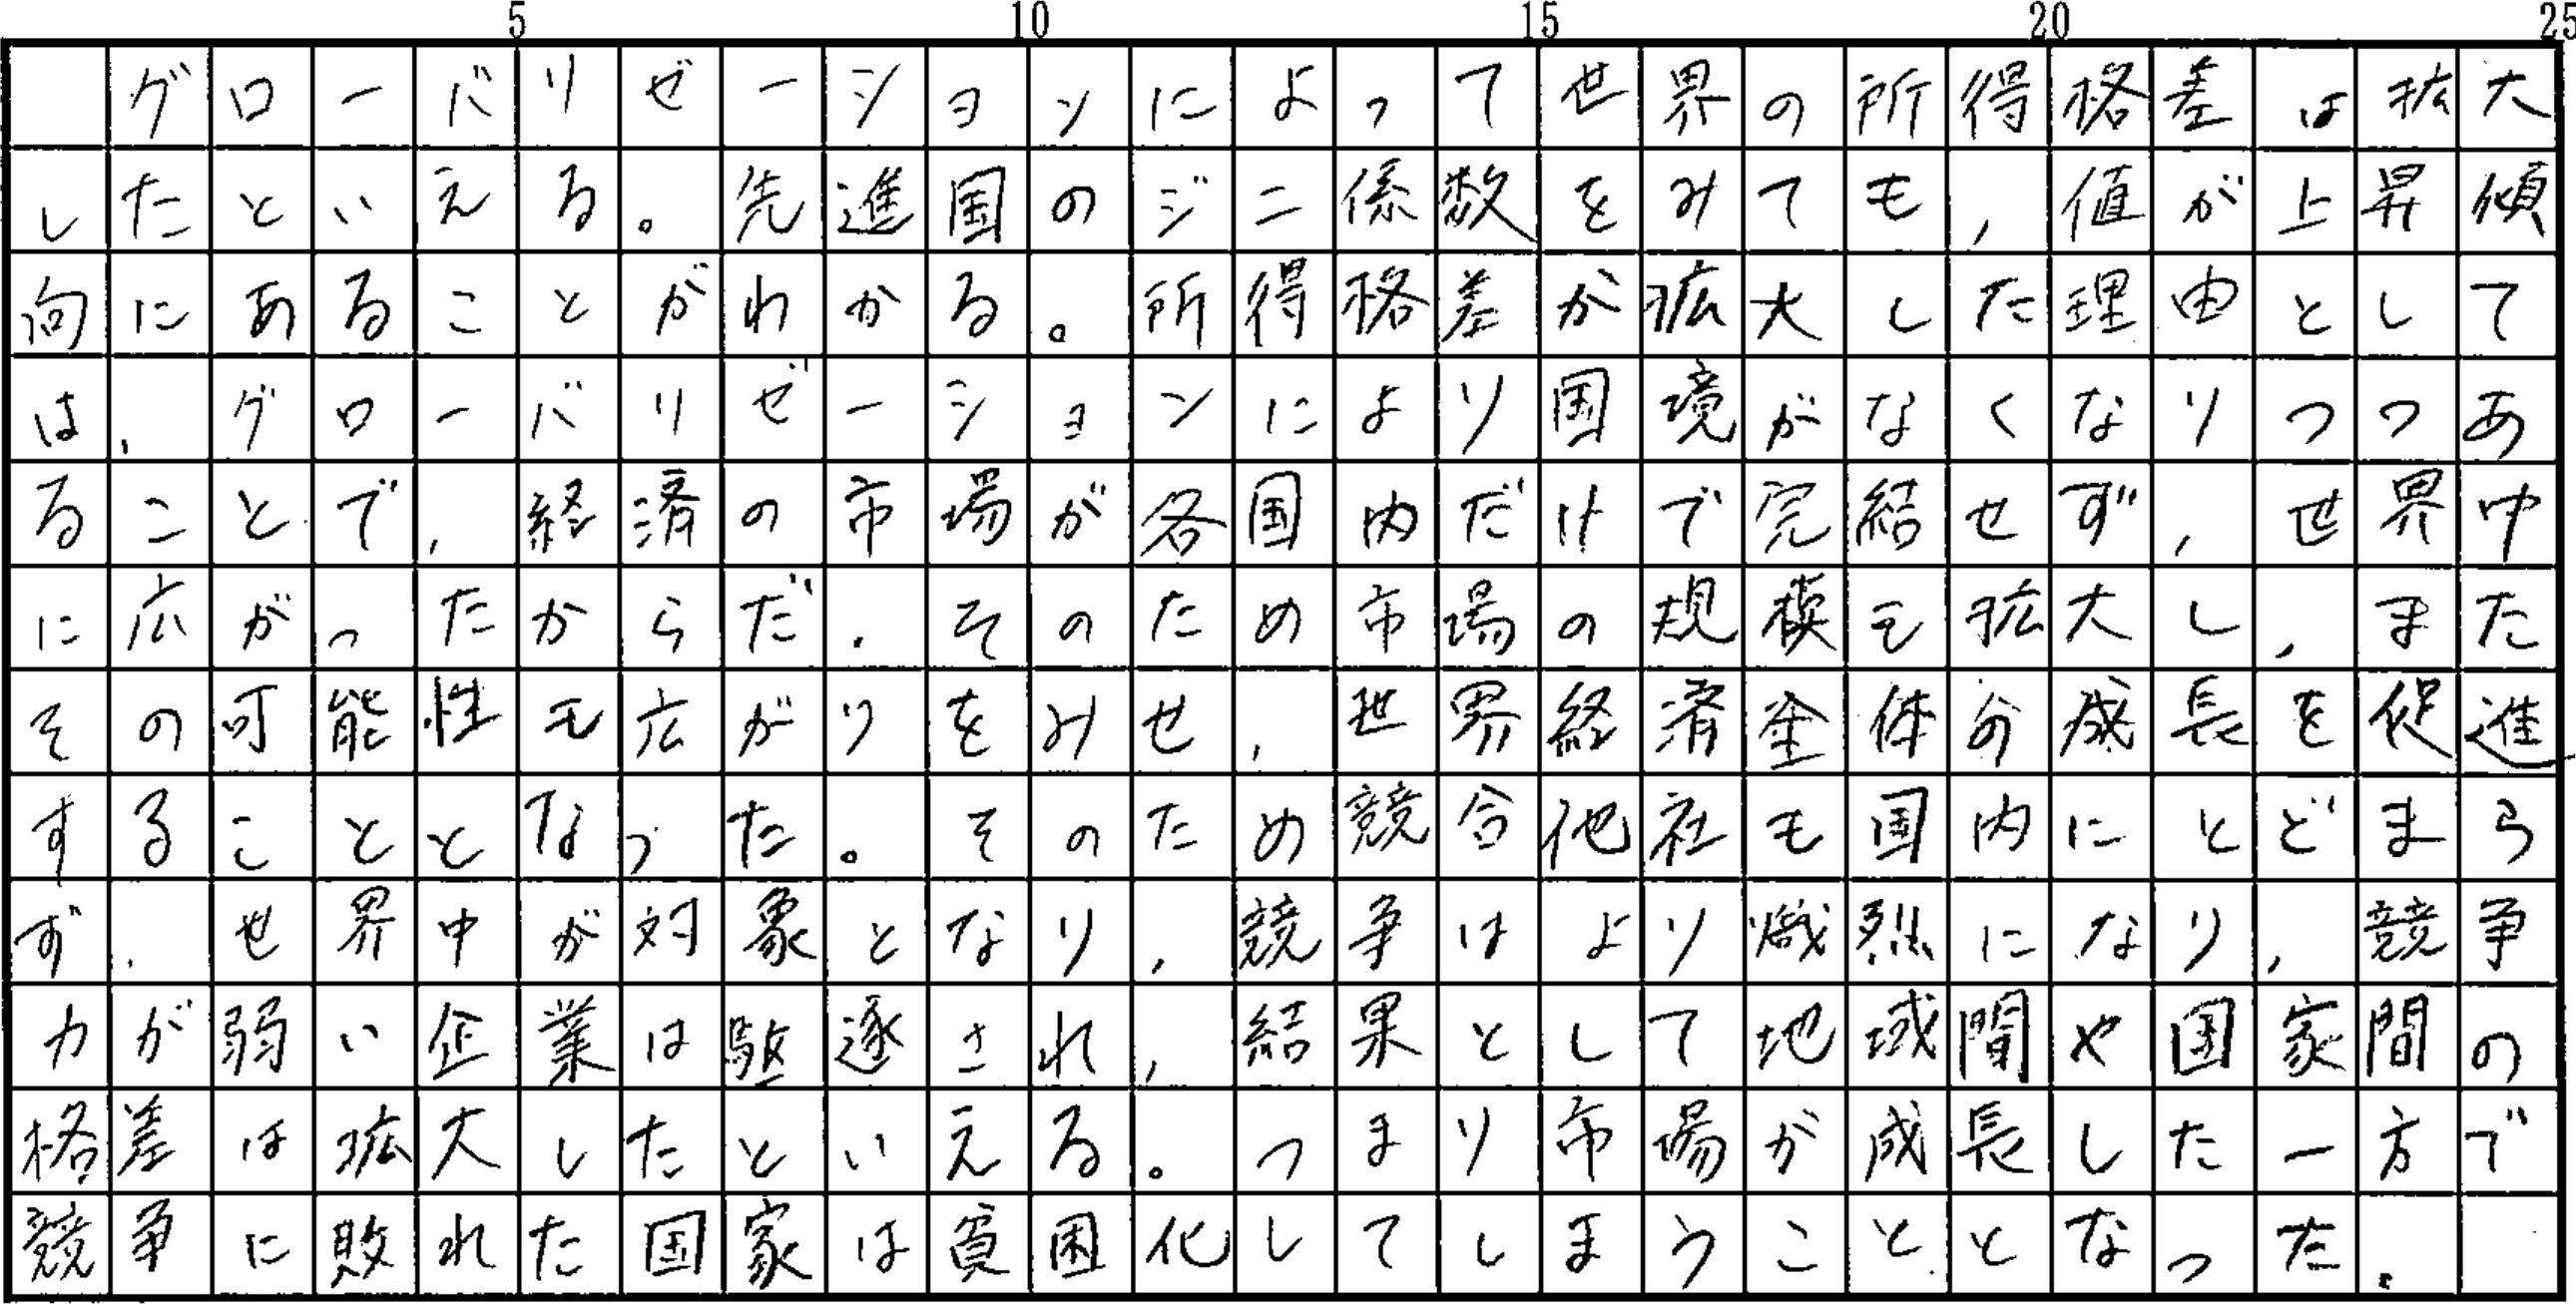 5 10 15 20 25
グローバリゼーションによって世界の所得格差は拡大
したといえる。先進国のジニ係数をみても,値が上昇傾
向にあることがわかる。所得格差が拡大した理由として
は,グローバリゼーションにより国境がなくなりつつあ
ることで,経済の市場が各国内だけで完結せず,世界中
に広がったからだ.そのため市場の規模も拡大し,また
その可能性も広がりをみせ,世界経済全体の成長を促進
することとなった。そのため競合他社も国内にとどまら
ず,世界中が対象となり,競争はより熾烈になり,競争
力が弱い企業は駆逐され,結果として地域間や国家間の
格差は拡大したといえる。つまり市場が成長した一方で
競争に敗れた国家は貧困化してしまうこととなった.